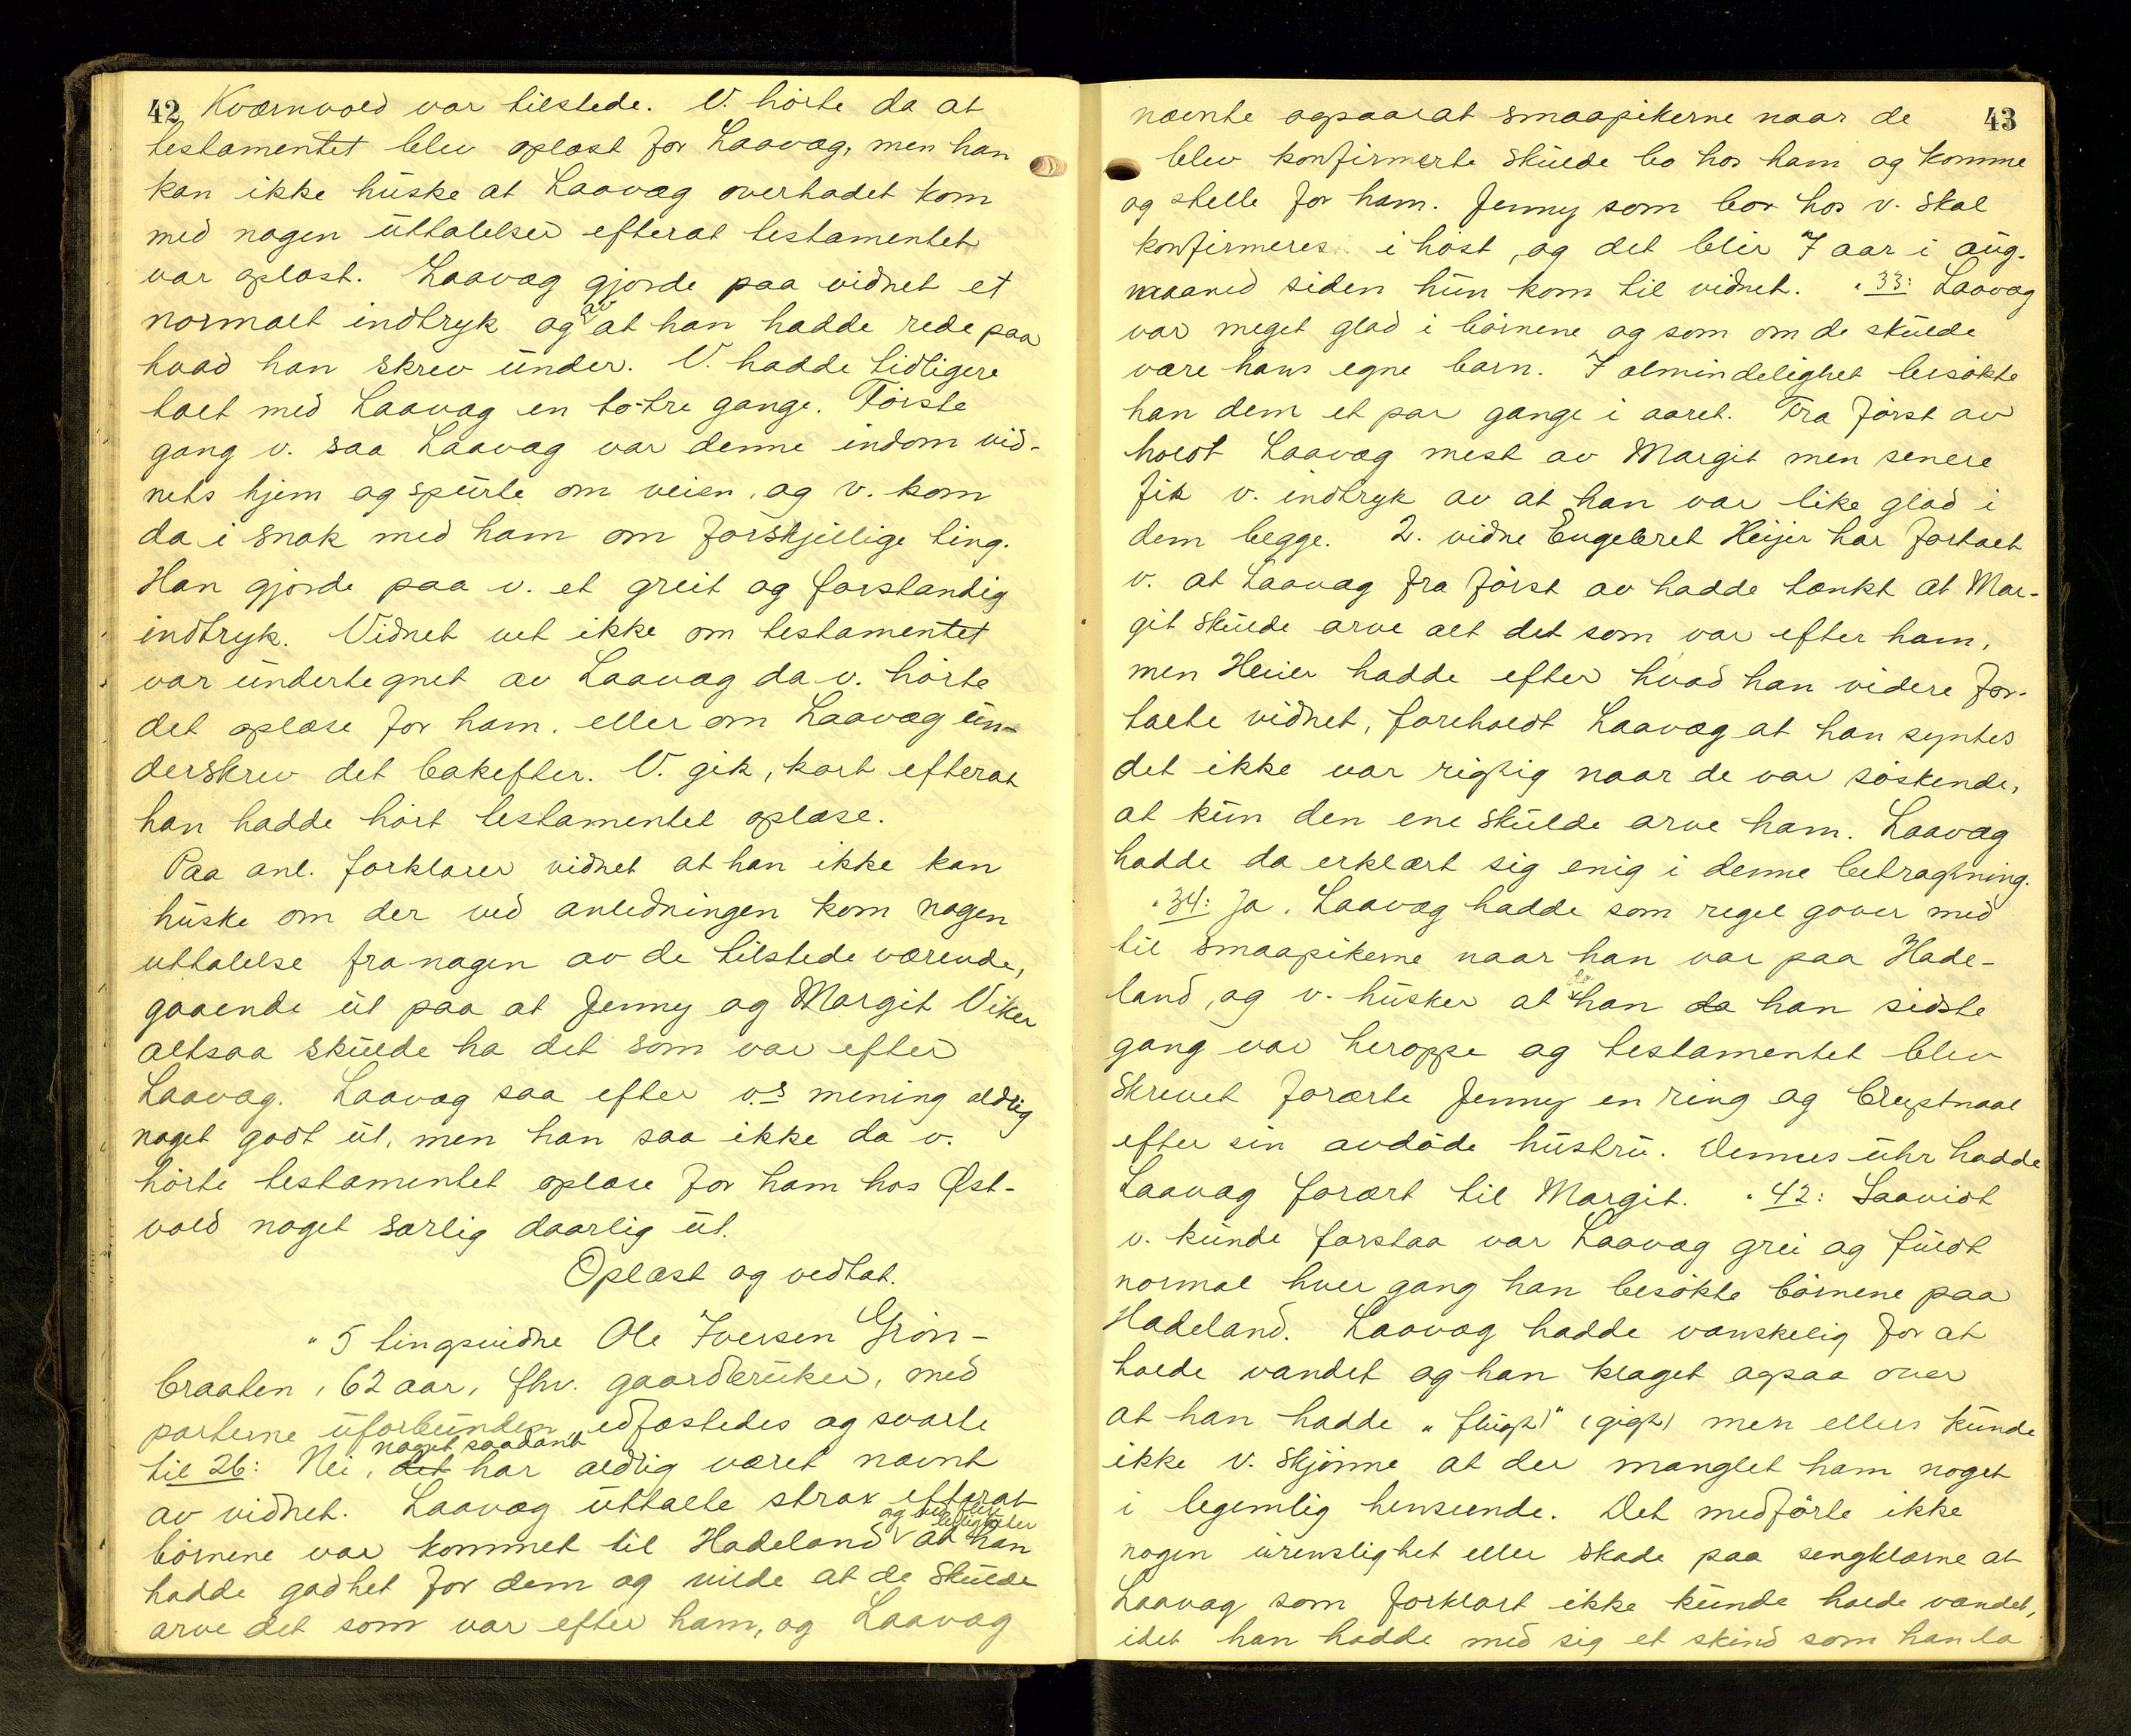 42 Kværnvold var tilstede. V. hörte da at
testamentet blev oplæst for Laavæg, men han
kan ikke huske at Laavæg overhodet kom
med nogen uttalelser efterat testamentet
var oplæst. Laavæg gjorde paa vidnet et
normalt indtryk og av at han hadde rede paa
hvad han skrev under. V. hadde tidligere
talt med Laavæg en to-tre gange. Förste
gang v. saa Laavæg var denne indom vid-
nets hjem og spurte om veien, og v. kom
da i snak med ham om forskjellige ting.
Han gjorde paa v. et greit og forstandig
indtryk. Vidnet vet ikke om testamentet
var undertegnet av Laavæg da v. hörte
det oplæse for ham. eller om Laavæg un-
derskrev det bakefter. V. gik, kort efterat
han hadde hört testamentet oplæse.
Paa anl. forklarer vidnet at han ikke kan
huske om der ved anledningen kom nogen
uttalelse fra nogen av de tilstede værende,
gaaende ut paa at Jenny og Margit Viker
altsaa skulde ha det som var efter
Laavæg. Laavæg saa efter v.s mening aldrig
noget godt ut, men han saa ikke da v.
hörte testamentet oplæse for ham hos Øst-
vold noget særlig daarlig ut.
Oplæst og vedtat.
" 5 tingsvidne Ole Iversen Grön-
braaten, 62 aar, fhv. gaardbruker, med
parterne uforbunden, edfæstedes og svarte
til 26: Nei, det noget saadant har aldrig været nævnt
av vidnet. Laavæg uttalte strax efterat
börnene var kommet til Hadeland og ved flere leiligheter at han
hadde godhet for dem og vilde at de skulde
arve det som var efter ham, og Laavæg
43
nævnte ogsaa at smaapikerne naar de
blev konfirmerte skulde bo hos ham og komme
og stelle for ham. Jenny som bor hos v. skal
konfirmeres i höst, og det blir 7 aar i aug.
maaned siden hun kom til vidnet. " 33: Laavæg
var meget glad i börnene og som om de skulde
være hans egne barn. I almindelighet besökte
han dem et par gange i aaret. Fra först av
holdt Laavæg mest av Margit men senere
fik v. indtryk av at han var like glad i
dem begge. 2. vidne Engebret Heijer har fortalt
v. at Laavæg fra först av hadde tænkt at Mar-
git skulde arve alt det som var efter ham,
men Heier hadde efter hvad han videre for-
talte vidnet, foreholdt Laavæg at han syntes
det ikke var rigtig naar de var söskende,
at kun den ene skulde arve ham. Laavæg
hadde da erklært sig enig i denne betragtning.
" 34: Ja. Laavæg hadde som regel gaver med
til smaapikerne naar han var paa Hade-
land, og v. husker at han da han sidste
gang var heroppe og testamentet blev
skrevet forærte Jenny en ring og brystnaal
efter sin avdöde hustru. Dennes uhr hadde
Laavæg foræret til Margit. " 42: Saavidt
v. kunde forstaa var Laavæg grei og fuldt
normal hver gang han besökte börnene paa
Hadeland. Laavæg hadde vanskelig for at
holde vandet og han klaget ogsaa over
at han hadde "flugt" (gigt) men ellers kunde
ikke v. skjönne at der manglet ham noget
i legemlig henseende. Det medförte ikke
nogen urenslighet eller skade paa sengklærne at
Laavæg som forklart ikke kunde holde vandet,
idet han hadde med sig et skind som han la